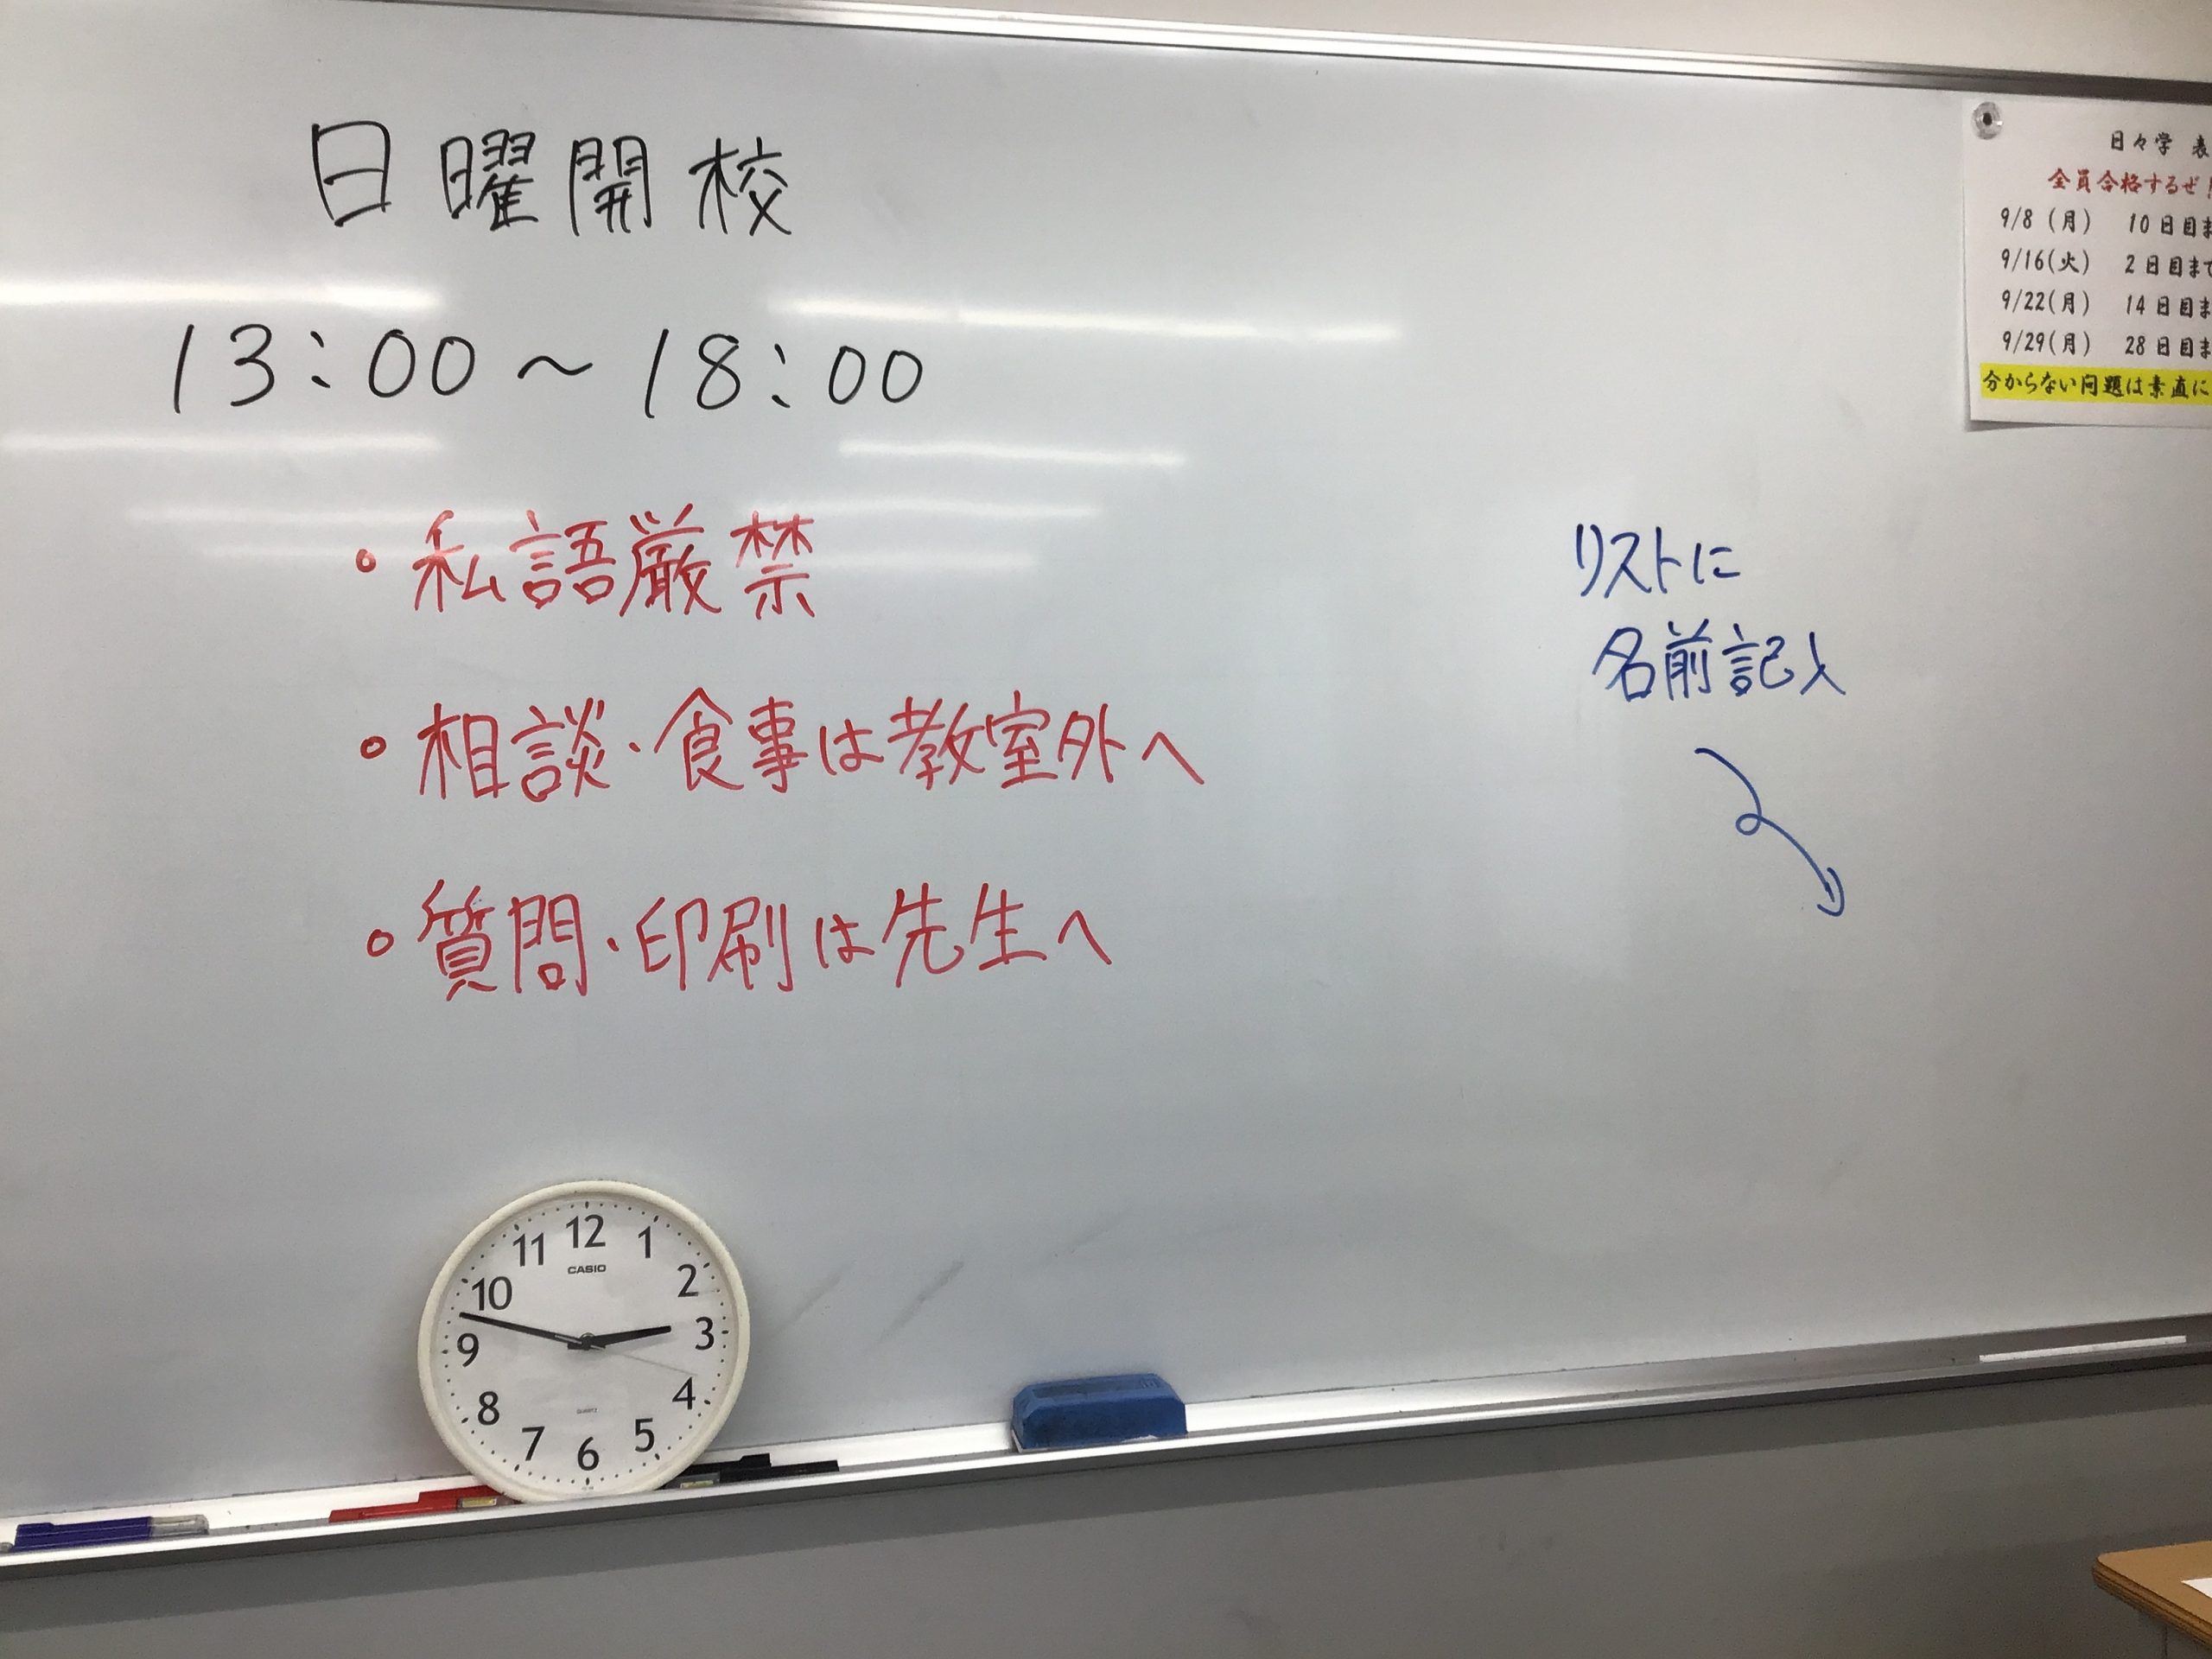 日曜開校
13:00～18:00
・私語厳禁
・相談・食事は教室外へ
・質問・印刷は先生へ
リストに
名前記入
日々学 表
全員合格するぜ！
9/8（月） 10日目ま
9/16(火) 2日目まで
9/22(月) 14日目ま
9/29(月) 28日目ま
分からない問題は素直に
12
1
2
3
4
5
6
7
8
9
10
11
CASIO
QUARTZ